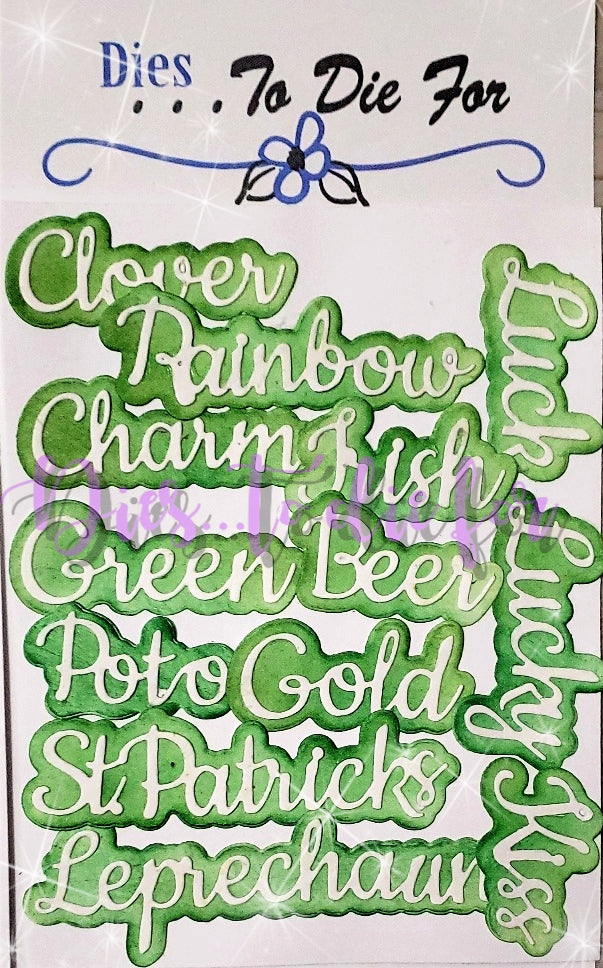 Dies
...To Die For
Clover
Rainbow
Charm Irish
Dies...to die for
Green Beer
Pot o Gold
St. Patricks
Leprechaun
Luck
Lucky
Kiss